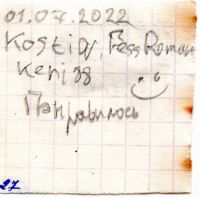 01.07.2022
Kostiqy, Fess Roman
Keniss
Понравилось
27